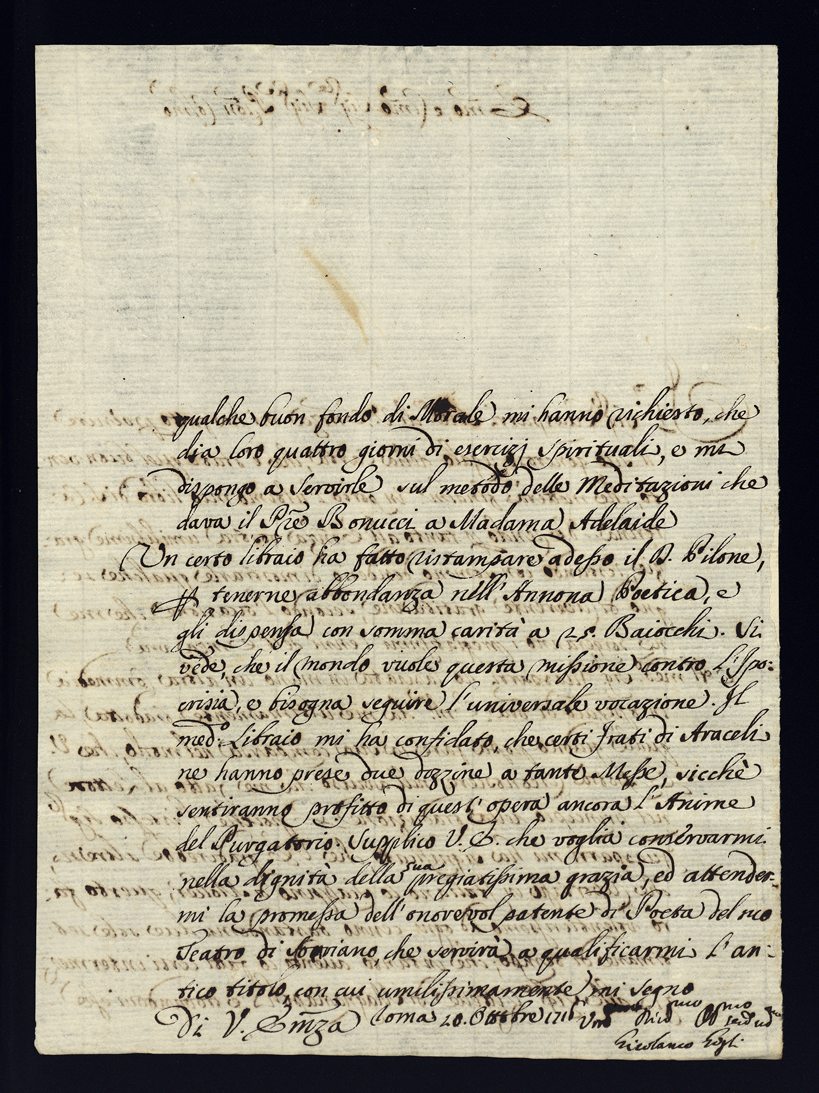 qualche buon fondo di Morale mi hanno richiesto, che
dia loro quattro giorni di esercizj spirituali, e mi
dispongo a servirle sul metodo delle Meditazioni che
dava il Pre Bonucci a Madama Adelaide
Un certo libraio ha fatto ristampare adesso il D. Pilone,
tenerne abbondanza nell'Annona Poetica, e
gli dispensa con somma carità a 25. Baiocchi. Si
vede, che il mondo vuole questa missione contro l'Ipo:
crisia, e bisogna seguire l'universale vocazione. Il
medo: Libraio mi ha confidato, che certi Frati di Araceli
ne hanno prese due dozzine a tante Messe, sicchè
sentiranno profitto di quest'opera ancora l'Anime
del Purgatorio. Supplico V. E. che voglia conservarmi
nella dignità della sua pregiatissima grazia, ed attender-
mi la promessa dell'onorevol patente di Poeta del suo
Teatro di Soviano che servirà a qualificarmi l'an:
tico titolo, con cui umilissimamente mi segno
Di V. Emza Roma 20. Ottobre
Gigli